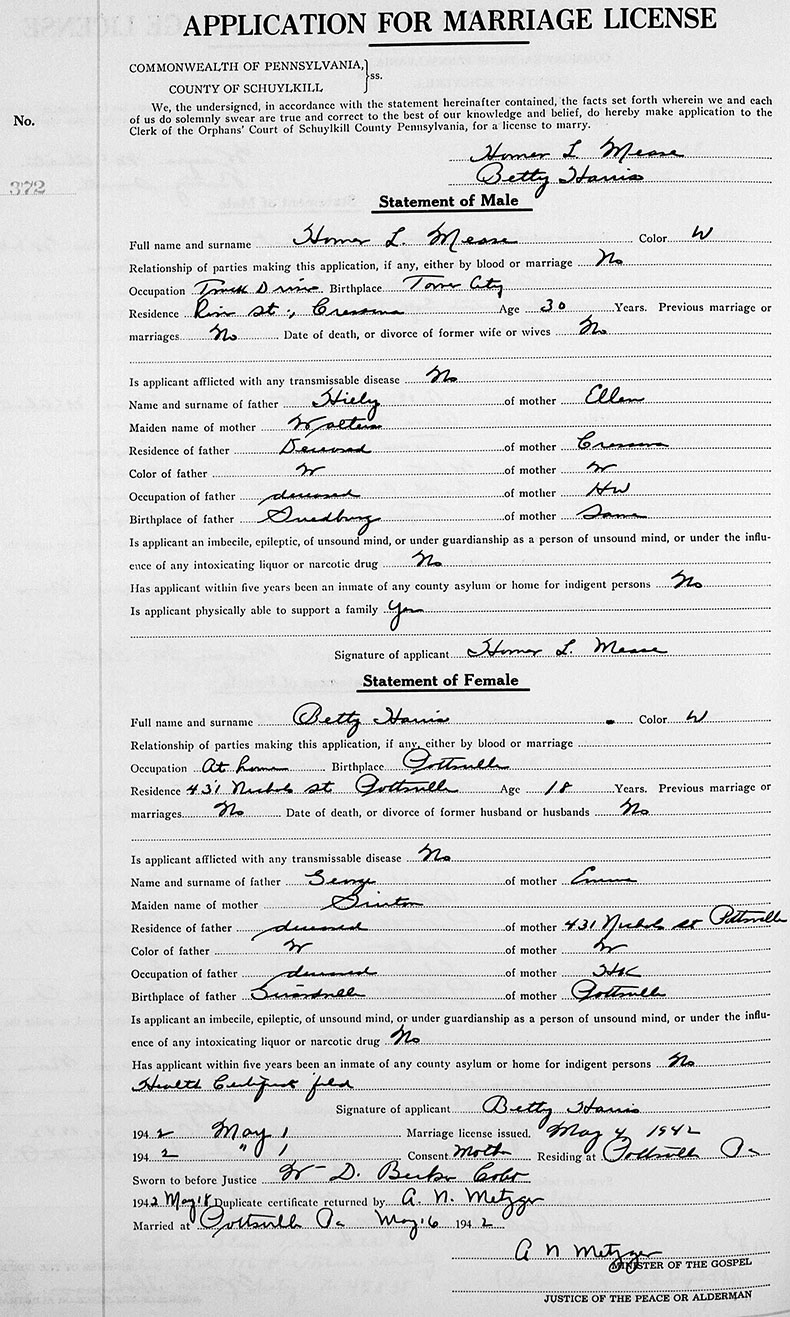 APPLICATION FOR MARRIAGE LICENSE
COMMONWEALTH OF PENNSYLVANIA,
COUNTY OF SCHUYLKILL
ss.
We, the undersigned, in accordance with the statement hereinafter contained, the facts set forth wherein we and each
of us do solemnly swear are true and correct to the best of our knowledge and belief, do hereby make application to the
Clerk of the Orphans' Court of Schuylkill County Pennsylvania, for a license to marry.
No.
372
Homer L. Mease
Betty Harris
Statement of Male
Full name and surname Homer L. Mease Color W
Relationship of parties making this application, if any, either by blood or marriage No
Occupation Truck Driver Birthplace Tower City
Residence St., Cressona Age 30 Years. Previous marriage or
marriages No Date of death, or divorce of former wife or wives No
Is applicant afflicted with any transmissable disease No
Name and surname of father of mother Ellen
Maiden name of mother Walters
Residence of father Deceased of mother Cressona
Color of father W of mother W
Occupation of father deceased of mother HW
Birthplace of father Suedburg of mother Same
Is applicant an imbecile, epileptic, of unsound mind, or under guardianship as a person of unsound mind, or under the influ-
ence of any intoxicating liquor or narcotic drug No
Has applicant within five years been an inmate of any county asylum or home for indigent persons No
Is applicant physically able to support a family Yes
Signature of applicant Homer L. Mease
Statement of Female
Full name and surname Betty Harris Color W
Relationship of parties making this application, if any, either by blood or marriage
Occupation At home Birthplace Pottsville
Residence 431 Nichols St Pottsville Age 18 Years. Previous marriage or
marriages No Date of death, or divorce of former husband or husbands No
Is applicant afflicted with any transmissable disease No
Name and surname of father George of mother Emma
Maiden name of mother
Residence of father deceased of mother 431 Nichols St Pottsville
Color of father W of mother W
Occupation of father deceased of mother HK
Birthplace of father Girardville of mother Pottsville
Is applicant an imbecile, epileptic, of unsound mind, or under guardianship as a person of unsound mind, or under the influ-
ence of any intoxicating liquor or narcotic drug No
Has applicant within five years been an inmate of any county asylum or home for indigent persons No
Health Certificate filed
Signature of applicant Betty Harris
1942 May 1 Marriage license issued. May 4 1942
1942 " 1 Consent Mother Residing at Pottsville Pa
Sworn to before Justice Wm D. Becker
1942 May 18 Duplicate certificate returned by A. N. Metzger
Married at Pottsville Pa May 16 1942
A N Metzger
MINISTER OF THE GOSPEL
JUSTICE OF THE PEACE OR ALDERMAN